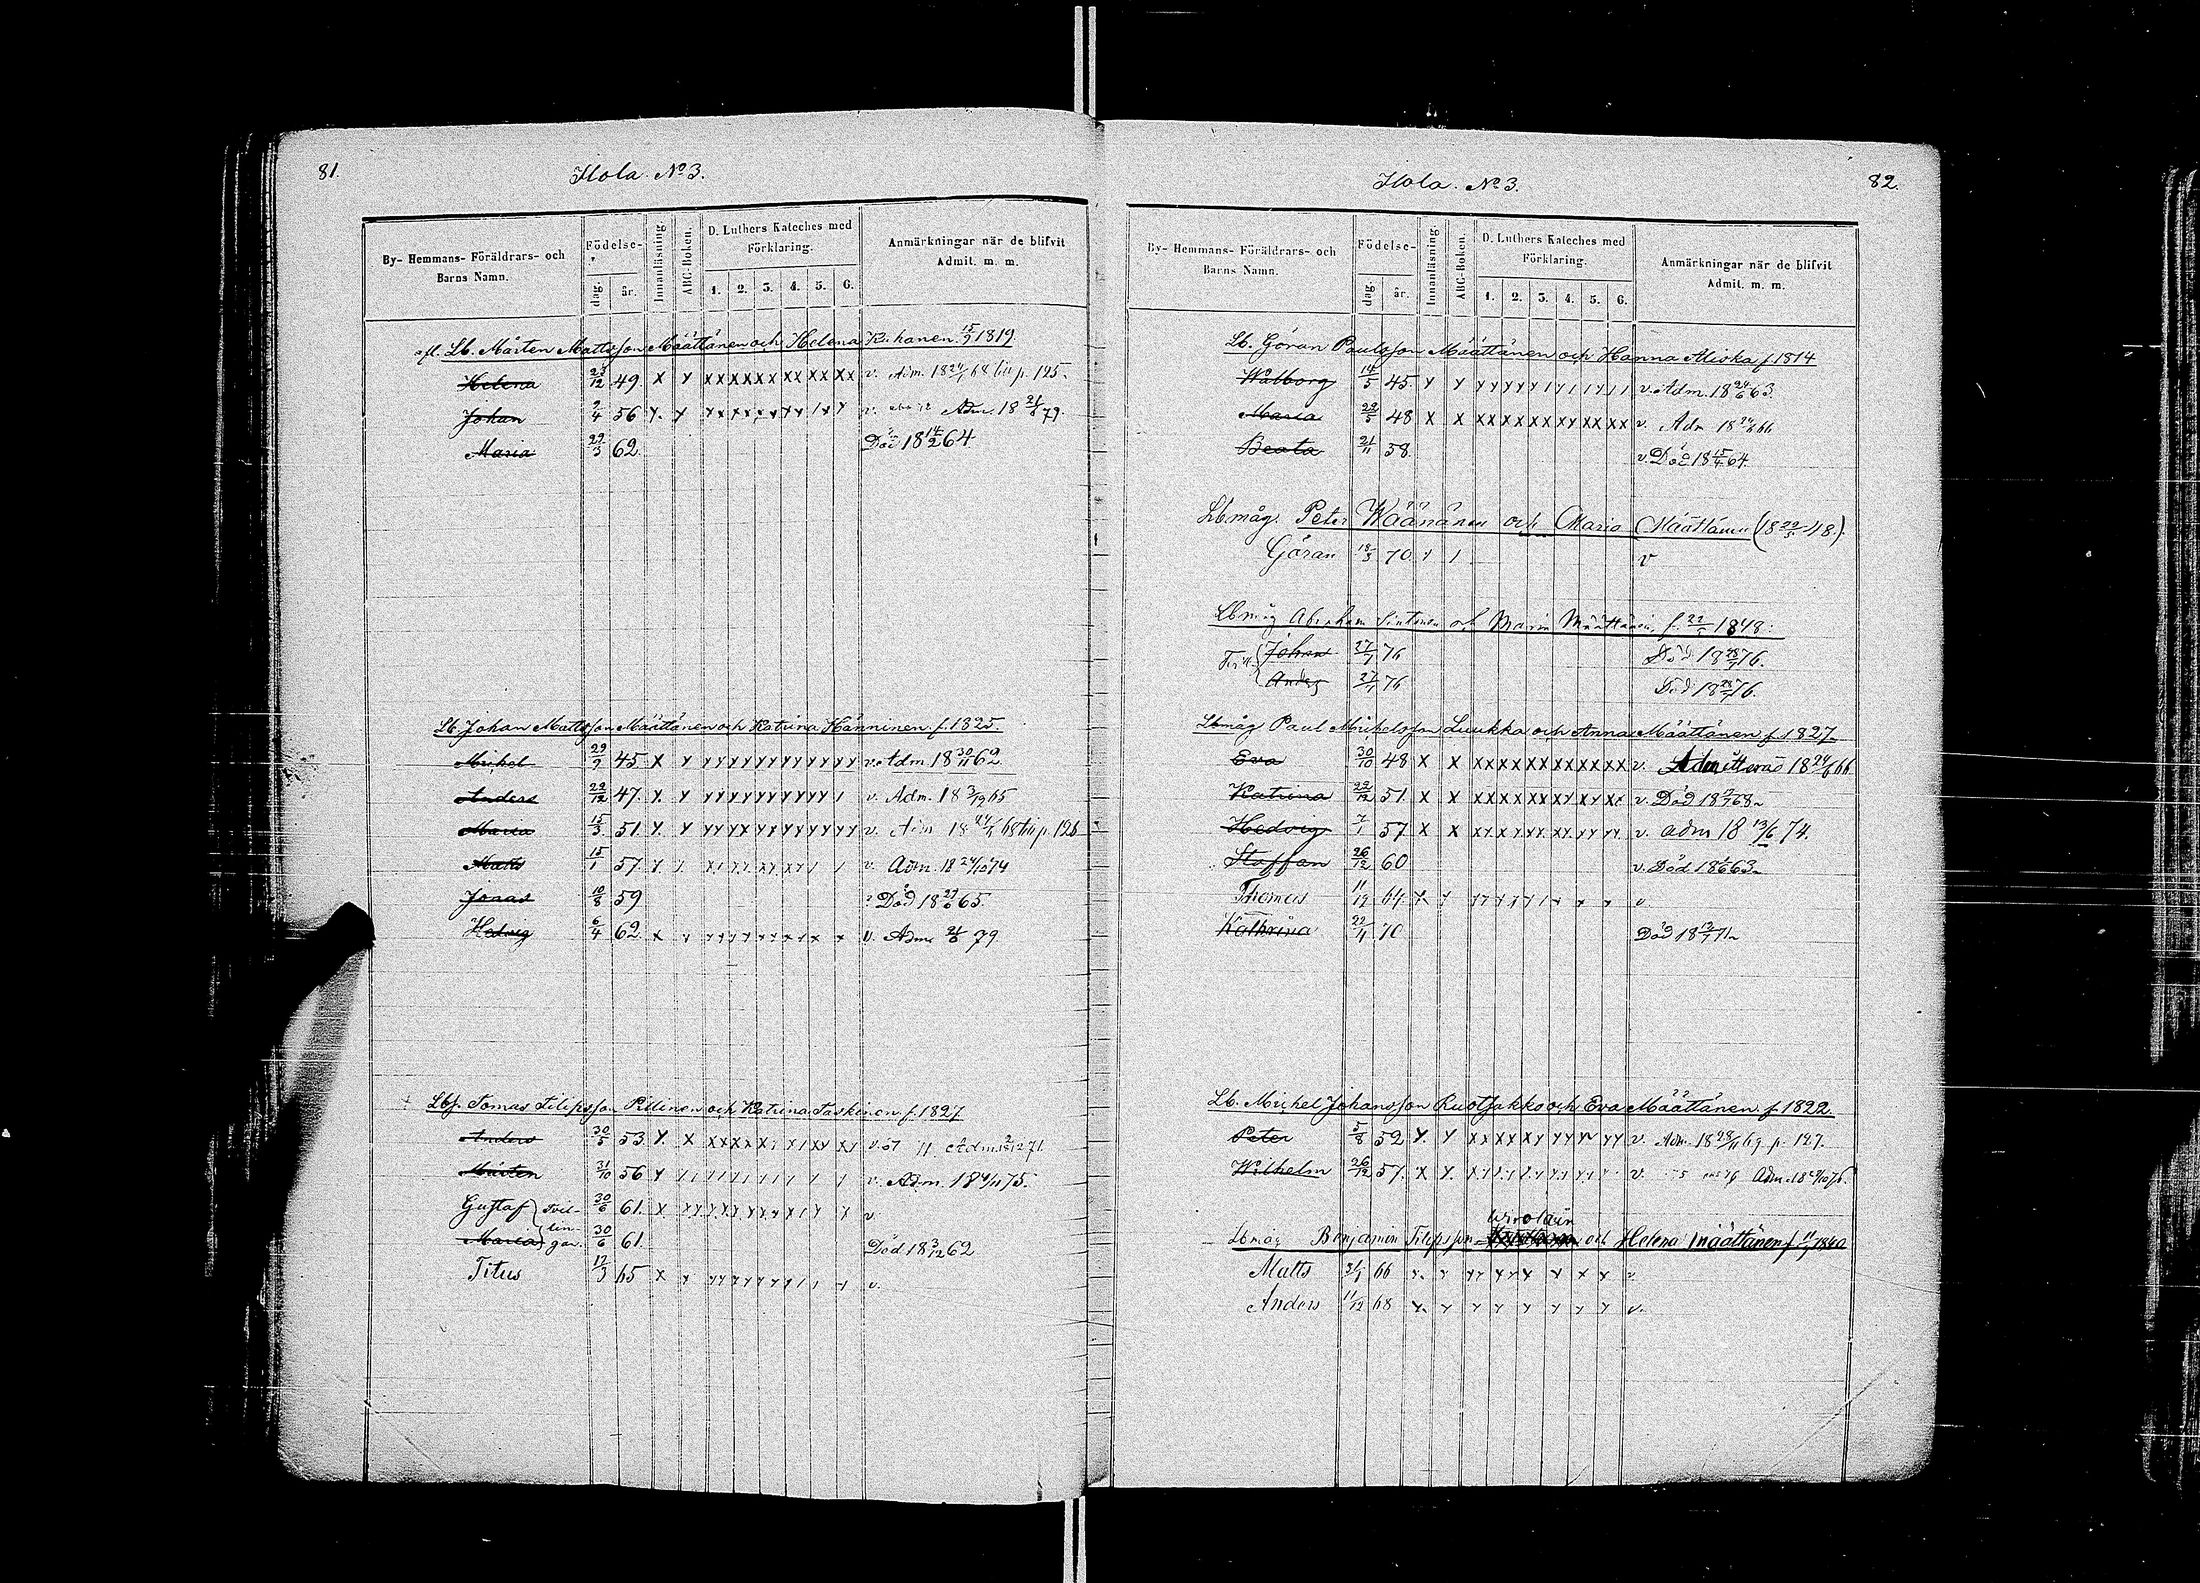 81.
Ilola. No 3.
By- Hemmans- Föräldrars- och Barns Namn.
Födelse-
dag. år.
Innanläsning
ABC-Boken.
D. Luthers Kateches med Förklaring.
1. 2. 3. 4. 5. 6.
Anmärkningar när de blifvit Admit. m. m.
afl. Lb. Mårten Mattsson Määttänen och Helena 15/9 1819
Helena 23/12 49. x y xx xx xx xx xx xx v. Adm. 18 24/1 68 p. 125.
Johan 9/4 56 v. Adm. 18 21/6 79.
Maria 29/3 62. Död 18 14/2 64
Lb. Johan Mattsson Määttänen och Katrina Hänninen f. 1825.
Michel 29/9 45 x y yy yy yy yy yy yy v. Adm 18 30/11 62
Anders 22/12 47. v. Adm. 18 65
Maria 15/3 51. v. Adm 18 68 p. 126
Matts 15/1 57. v. Adm. 18 24/10 74
Jonas 10/8 59 Död 18 65.
Hedvig 6/4 62. v. Adm 21/6 79
Lbs. Tomas Filipsson Pillinen och Katrina Taskinen f. 1827
Anders 30/5 53 v. Adm. 71.
Mårten 31/10 56 v. Adm. 18 75.
Gustaf 30/6 61. v.
Tvillingar.
Maria 30/6 61. Död 18 3/12 62
Titus 17/9 65 v.
Ilola. No 3.
82.
By- Hemmans- Föräldrars- och Barns Namn.
Födelse-
dag. år.
Innanläsning
ABC-Boken.
D. Luthers Kateches med Förklaring.
1. 2. 3. 4. 5. 6.
Anmärkningar när de blifvit Admit. m. m.
Lb. Göran Paulsson Määttänen och Hanna Miska f. 1814
Walborg 14/5 45. v. Adm. 18 24/6 63.
Maria 22/5 48 x x xx xx xx xx xx xx v. Adm 18 66
Beata 21/11 58. v. Död 18 15/4 64.
Lbmåg. Peter Wäänänen och Maria Määttänen (18 22/5 48.)
Göran 18/3 70. v
Lbmåg Abraham Sintonen och Maria Määttänen f. 22/5 1848.
Johan 27/1 76 Död 18 76.
Anders 27/1 76 Död 18 76.
Lbmåg Paul Michelsson Luukka och Anna Määttänen f. 1827
Eva 30/10 48 x x xx xx xx xx xx xx v. Admitteras 18 24/6 66
Katrina 22/12 51. x x v. Död 18 68
Hedvig 7/1 57. x x v. adm 18 74.
Staffan 26/12 60 v. Död 18 63
Thomas 11/12 64. v.
Kathrina 22/4 70 Död 18 71
Lb. Michel Johansson Ruotsakko och Eva Määttänen f. 1822.
Peter 5/8 52 v. Adm. 18 28/11 69 p. 127.
Wilhelm 26/12 57. v. Adm. 18 76.
Lbmåg Benjamin Filipsson Wirolain och Helena Määttänen f. 1840
Matts 31/1 66
Anders 11/12 68 v.